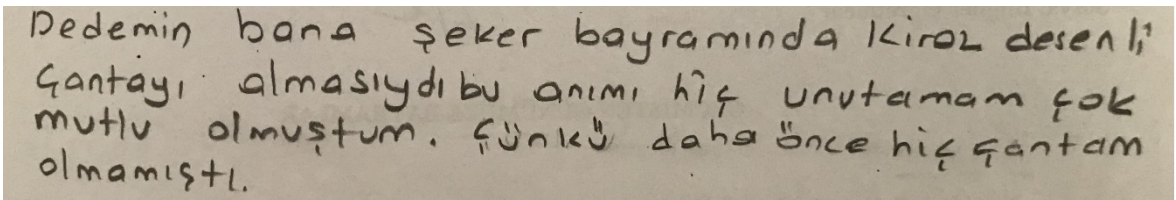 Dedemin bana şeker bayramında kiraz desenli
çantayı almasıydı bu anımı hiç unutamam çok
mutlu olmuştum. Çünkü daha önce hiç çantam
olmamıştı.